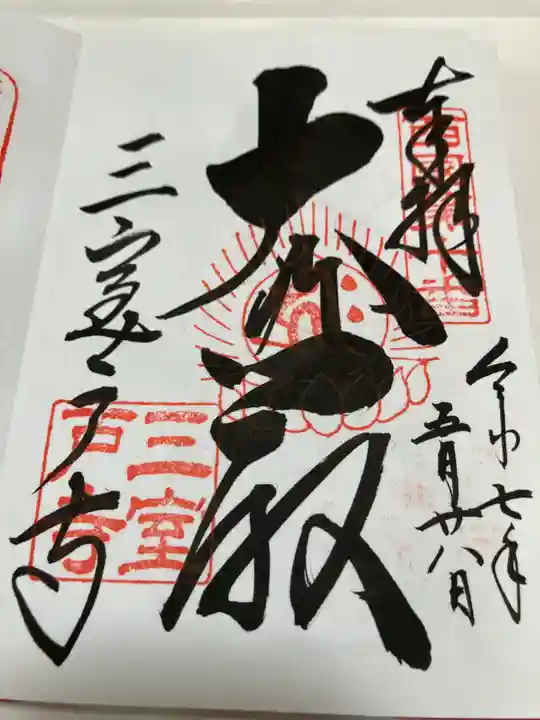 奉拝
西国第十番
令和七年
五月廿八日
大悲殿
三室戸寺
三室
戸寺